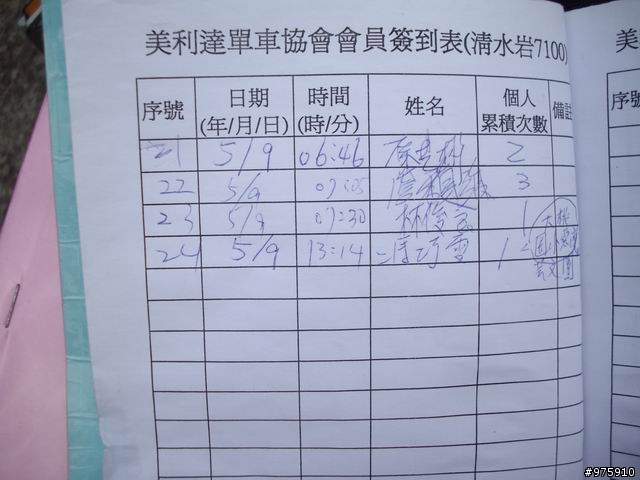 美利達單車協會會員簽到表(清水岩7100)
序號 日期 (年/月/日) 時間 (時/分) 姓名 個人 累積次數 備註
21 5/9 06:46 2
22 5/9 07:05 3
23 5/9 07:30 林俊 1
24 5/9 13:14 1
美
序號
#975910